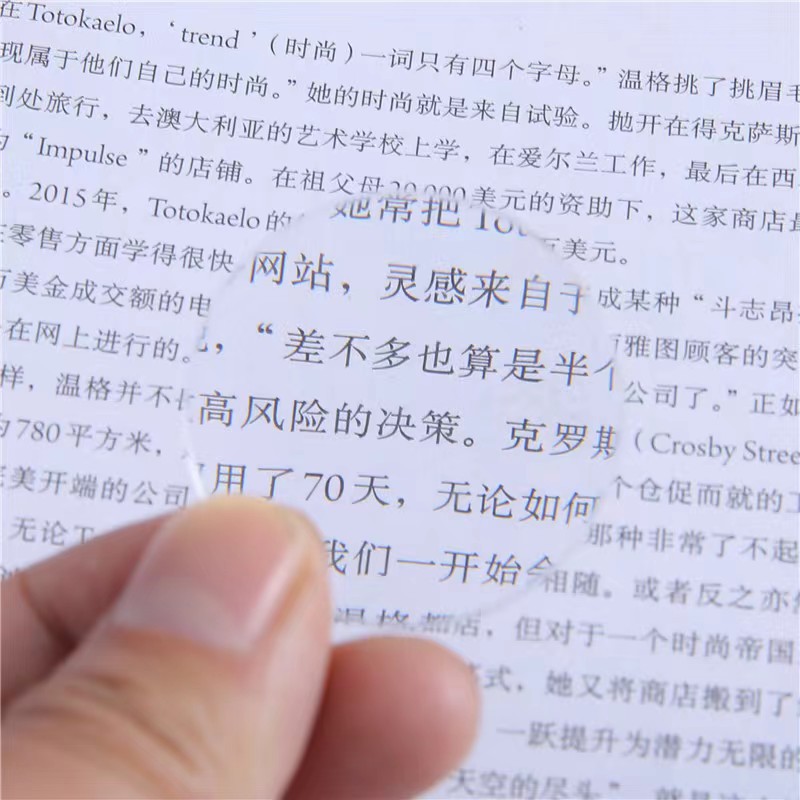 在Totokaelo，‘trend’（时尚）一词只有四个字母。”温格挑了挑眉毛
现属于他们自己的时尚。”她的时尚就是来自试验。抛开在得克萨斯
到处旅行，去澳大利亚的艺术学校上学，在爱尔兰工作，最后在西
“Impulse”的店铺。在祖父母20 000美元的资助下，这家商店最
。2015年，Totokaelo的 她常把 万美元。
在零售方面学得很快 网站，灵感来自于 成某种“斗志昂
万美金成交额的电 ，“差不多也算是半个 雅图顾客的突
在网上进行的。 公司了。”正如
样，温格并不 高风险的决策。克罗斯（Crosby Stree
为780平方米， 用了70天，无论如何 个仓促而就的
完美开端的公司 我们一开始 那种非常了不起
无论 相随。或者反之亦然
温格 店，但对于一个时尚帝国
式，她又将商店搬到了
一跃提升为潜力无限的
天空的尽头”，就是这